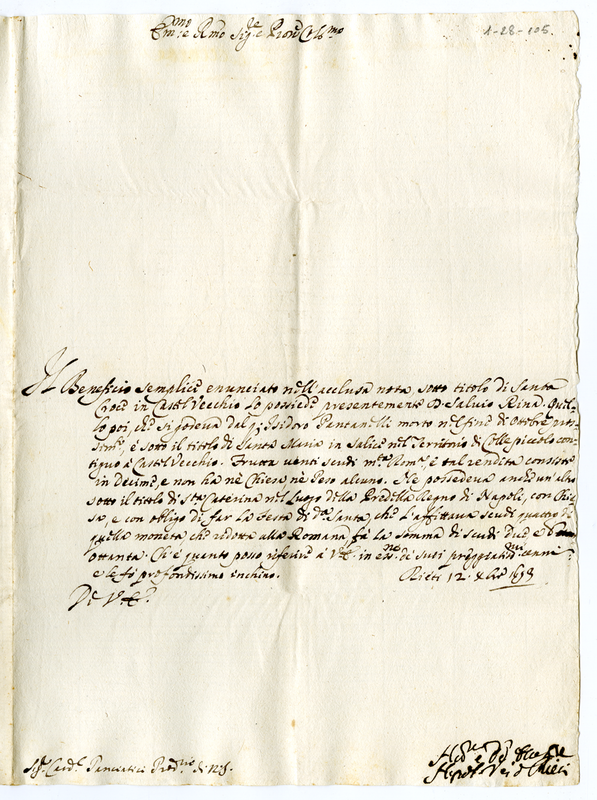 Em.mo e R.mo Sig.re e Pron. Col.mo
1-28-105.
Il Beneficio semplice enunciato nell'acclusa nota sotto titolo di Santa
Croce in Castel Vecchio lo possiede presentemente D. Salvio Rinal. Quel-
lo poi, che si godeva dal q. Isidoro Pantanelli morto nel fine di Ottobre
, è sotto il titolo di Santa Maria in Salice nel Territorio di Collepiccolo con-
tiguo à Castel Vecchio. Frutta venti scudi m.ta Rom.a, e tal rendita consiste
in decime, e non ha nè Chiesa nè peso alcuno. Ne possedeva anche un altro
sotto il titolo di S.ta Caterina nel luogo della Predella Regno di Napoli, con Chie-
sa, e con obligo di far la festa di d.a Santa, che l'affittava scudi quattro di
quella moneta che ridotta alla Romana fà la somma di scudi due e
ottanta. Che è quanto posso riferire à V.E. in de suoi cenni
e le fò profondissimo inchino. Rieti 12. Xbre 1698
De V.E.
Sig.r Card.l Panciatici di N.S.